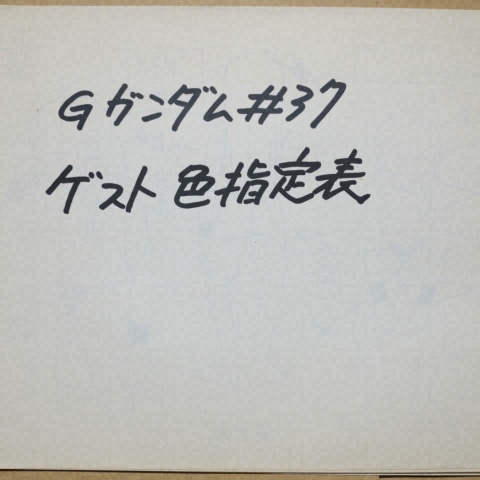 Gガンダム#37
ゲスト 色指定表